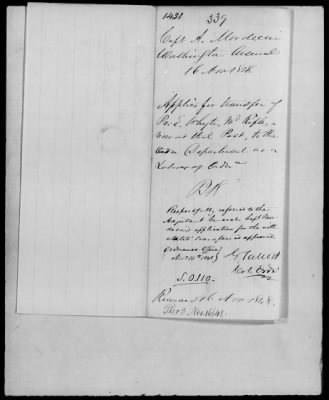 1421 339
Capt A. Mordecai
Washington Arsenal
16 Nov 1848.
Applies for transfer of
Rifles,
now at that Post, to the
Ordn Department as a
Laborer of Ordn
Respectfully referred to the
Adjutant General. Capt Mor-
decai's application for the with-
transfer is approved
Ordnance Office
Nov 16th 1848
G Talcott
Col. Ordn
S.O. 110.
Received 16 Nov 1848.
Nov. 16. 48.